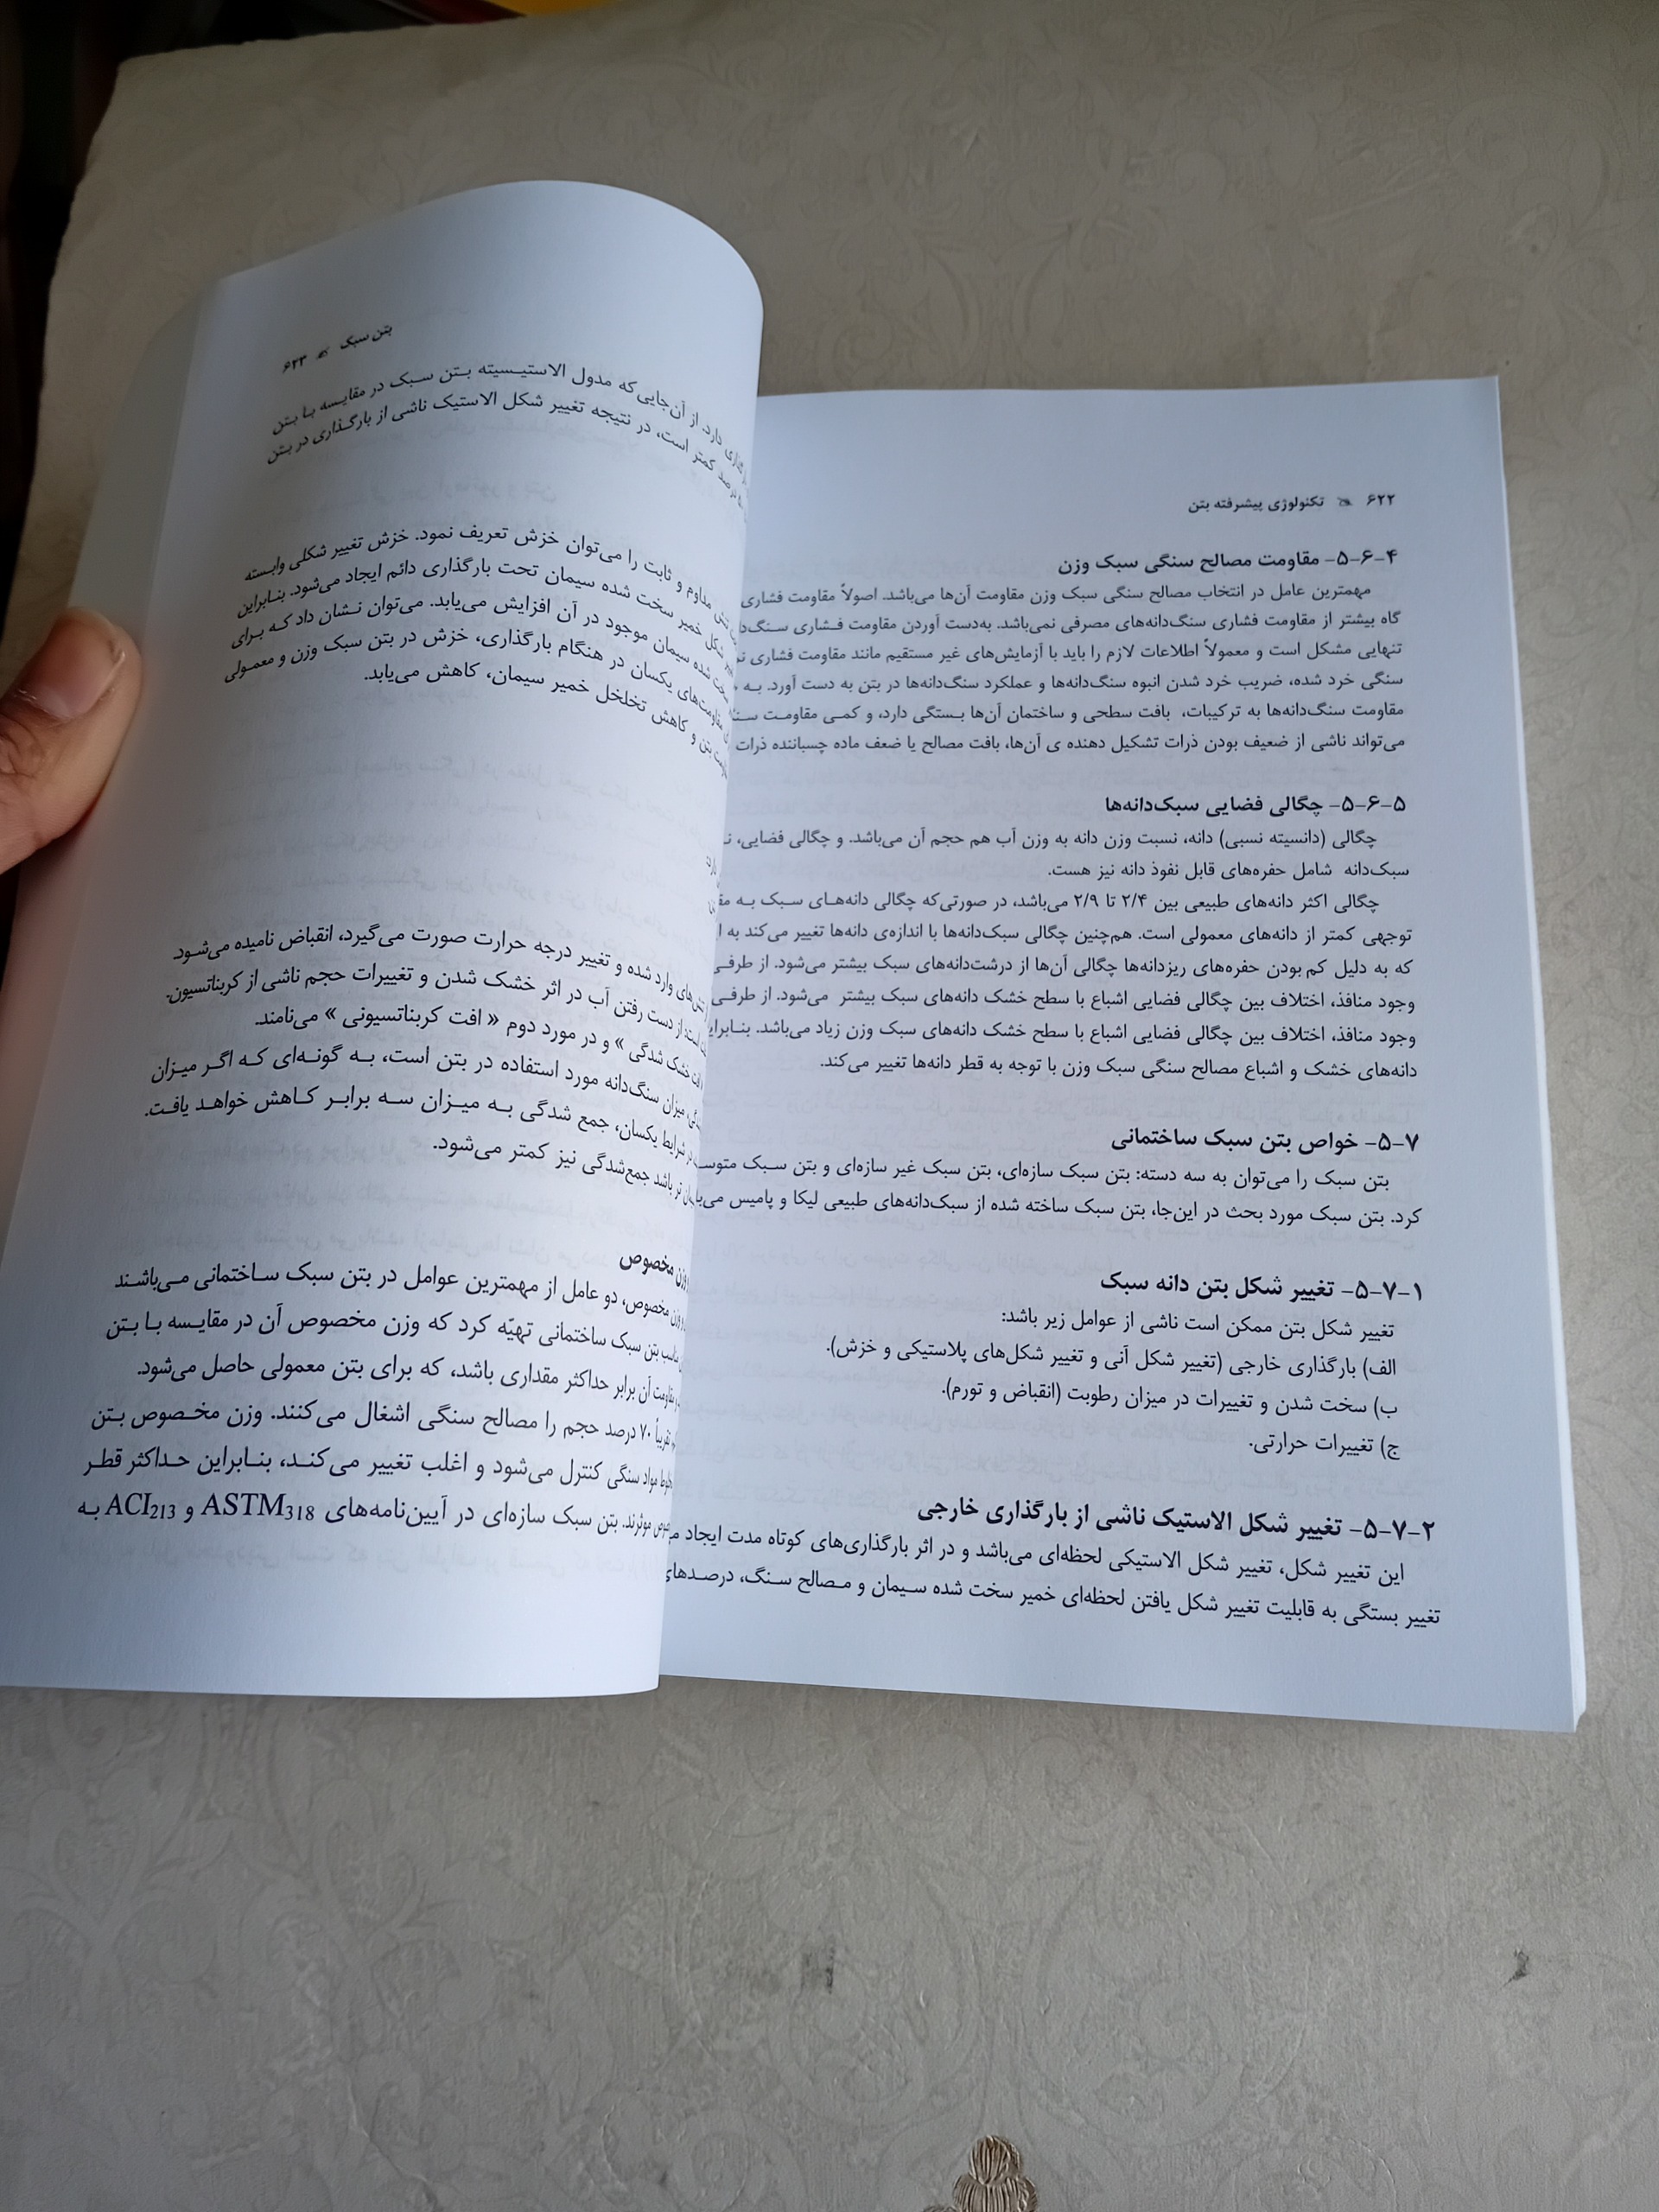 ۶۲۲ تکنولوژی پیشرفته بتن
۵-۶-۴- مقاومت مصالح سنگی سبک وزن
مهمترین عامل در انتخاب مصالح سنگی سبک وزن مقاومت آن‌ها می‌باشد. اصولاً مقاومت فشاری
گاه بیشتر از مقاومت فشاری سنگ‌دانه‌های مصرفی نمی‌باشد. به‌دست آوردن مقاومت فشاری
تنهایی مشکل است و معمولاً اطلاعات لازم را باید با آزمایش‌های غیر مستقیم مانند مقاومت فشاری
سنگی خرد شده، ضریب خرد شدن انبوه سنگ‌دانه‌ها و عملکرد سنگ‌دانه‌ها در بتن به دست آورد. به
مقاومت سنگ‌دانه‌ها به ترکیبات، بافت سطحی و ساختمان آن‌ها بستگی دارد، و کمی مقاومت
می‌تواند ناشی از ضعیف بودن ذرات تشکیل دهنده ی آن‌ها، بافت مصالح یا ضعف ماده چسباننده ذرات
۵-۶-۵- چگالی فضایی سبک‌دانه‌ها
چگالی (دانسیته نسبی) دانه، نسبت وزن دانه به وزن آب هم حجم آن می‌باشد. و چگالی فضایی،
سبک‌دانه شامل حفره‌های قابل نفوذ دانه نیز هست.
چگالی اکثر دانه‌های طبیعی بین ۲/۴ تا ۲/۹ می‌باشد، در صورتی‌که چگالی دانه‌های سبک به
توجهی کمتر از دانه‌های معمولی است. هم‌چنین چگالی سبک‌دانه‌ها با اندازه‌ی دانه‌ها تغییر می‌کند به
که به دلیل کم بودن حفره‌های ریزدانه‌ها چگالی آن‌ها از درشت‌دانه‌های سبک بیشتر می‌شود. از طرفی
وجود منافذ، اختلاف بین چگالی فضایی اشباع با سطح خشک دانه‌های سبک بیشتر می‌شود. از طرفی
وجود منافذ، اختلاف بین چگالی فضایی اشباع با سطح خشک دانه‌های سبک وزن زیاد می‌باشد.
دانه‌های خشک و اشباع مصالح سنگی سبک وزن با توجه به قطر دانه‌ها تغییر می‌کند.
۵-۷- خواص بتن سبک ساختمانی
بتن سبک را می‌توان به سه دسته: بتن سبک سازه‌ای، بتن سبک غیر سازه‌ای و بتن سبک
کرد. بتن سبک مورد بحث در این‌جا، بتن سبک ساخته شده از سبک‌دانه‌های طبیعی لیکا و پامیس
۵-۷-۱- تغییر شکل بتن دانه سبک
تغییر شکل بتن ممکن است ناشی از عوامل زیر باشد:
الف) بارگذاری خارجی (تغییر شکل آنی و تغییر شکل‌های پلاستیکی و خزش).
ب) سخت شدن و تغییرات در میزان رطوبت (انقباض و تورم).
ج) تغییرات حرارتی.
۵-۷-۲- تغییر شکل الاستیک ناشی از بارگذاری خارجی
این تغییر شکل، تغییر شکل الاستیکی لحظه‌ای می‌باشد و در اثر بارگذاری‌های کوتاه مدت ایجاد
تغییر بستگی به قابلیت تغییر شکل یافتن لحظه‌ای خمیر سخت شده سیمان و مصالح سنگ، درصدهای
بتن سبک ۶۲۳
دارد. از آن‌جایی که مدول الاستیسیته بتن سبک در مقایسه با بتن
درصد کمتر است، در نتیجه تغییر شکل الاستیک ناشی از بارگذاری در بتن
مداوم و ثابت را می‌توان خزش تعریف نمود. خزش تغییر شکلی وابسته
شکل خمیر سخت شده سیمان تحت بارگذاری دائم ایجاد می‌شود. بنابراین
شده سیمان موجود در آن افزایش می‌یابد. می‌توان نشان داد که برای
مقاومت‌های یکسان در هنگام بارگذاری، خزش در بتن سبک وزن و معمولی
بتن و کاهش تخلخل خمیر سیمان، کاهش می‌یابد.
وارد شده و تغییر درجه حرارت صورت می‌گیرد، انقباض نامیده می‌شود.
از دست رفتن آب در اثر خشک شدن و تغییرات حجم ناشی از کربناتسیون.
خشک شدگی » و در مورد دوم « افت کربناتسیونی » می‌نامند.
میزان سنگ‌دانه مورد استفاده در بتن است، به گونه‌ای که اگر میزان
شرایط یکسان، جمع شدگی به میزان سه برابر کاهش خواهد یافت.
تر باشد جمع‌شدگی نیز کمتر می‌شود.
وزن مخصوص
وزن مخصوص، دو عامل از مهمترین عوامل در بتن سبک ساختمانی می‌باشند
بتن سبک ساختمانی تهیّه کرد که وزن مخصوص آن در مقایسه با بتن
مقاومت آن برابر حداکثر مقداری باشد، که برای بتن معمولی حاصل می‌شود.
تقریباً ۷۰ درصد حجم را مصالح سنگی اشغال می‌کنند. وزن مخصوص بتن
مواد سنگی کنترل می‌شود و اغلب تغییر می‌کند، بنابراین حداکثر قطر
موثرند. بتن سبک سازه‌ای در آیین‌نامه‌های ASTM318 و ACI213 به